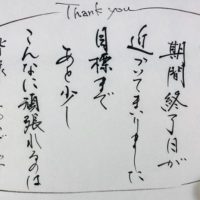 Thank you
期間終了日が
近づいてまいりました
目標まで
あと少し
こんなに頑張れるのは